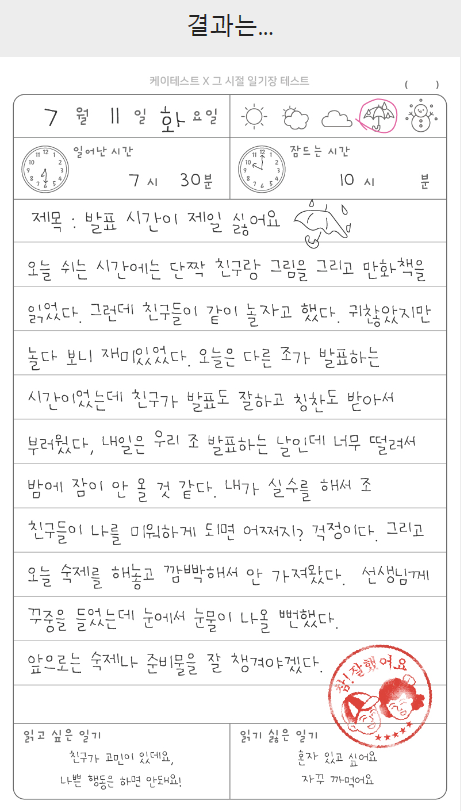 결과는...
케이테스트 X 그 시절 일기장 테스트
( )
7 월 11 일 화 요일
일어난 시간
7 시 30 분
잠드는 시간
10 시 분
제목 : 발표 시간이 제일 싫어요
오늘 쉬는 시간에는 단짝 친구랑 그림을 그리고 만화책을
읽었다. 그런데 친구들이 같이 놀자고 했다. 귀찮았지만
놀다 보니 재미있었다. 오늘은 다른 조가 발표하는
시간이었는데 친구가 발표도 잘하고 칭찬도 받아서
부러웠다, 내일은 우리 조 발표하는 날인데 너무 떨려서
밤에 잠이 안 올 것 같다. 내가 실수를 해서 조
친구들이 나를 미워하게 되면 어쩌지? 걱정이다. 그리고
오늘 숙제를 해놓고 깜빡해서 안 가져왔다. 선생님께
꾸중을 들었는데 눈에서 눈물이 나올 뻔했다.
앞으로는 숙제나 준비물을 잘 챙겨야겠다.
참! 잘했어요
읽고 싶은 일기
친구가 고민이 있데요,
나쁜 행동은 하면 안돼요!
읽기 싫은 일기
혼자 있고 싶어요
자꾸 까먹어요